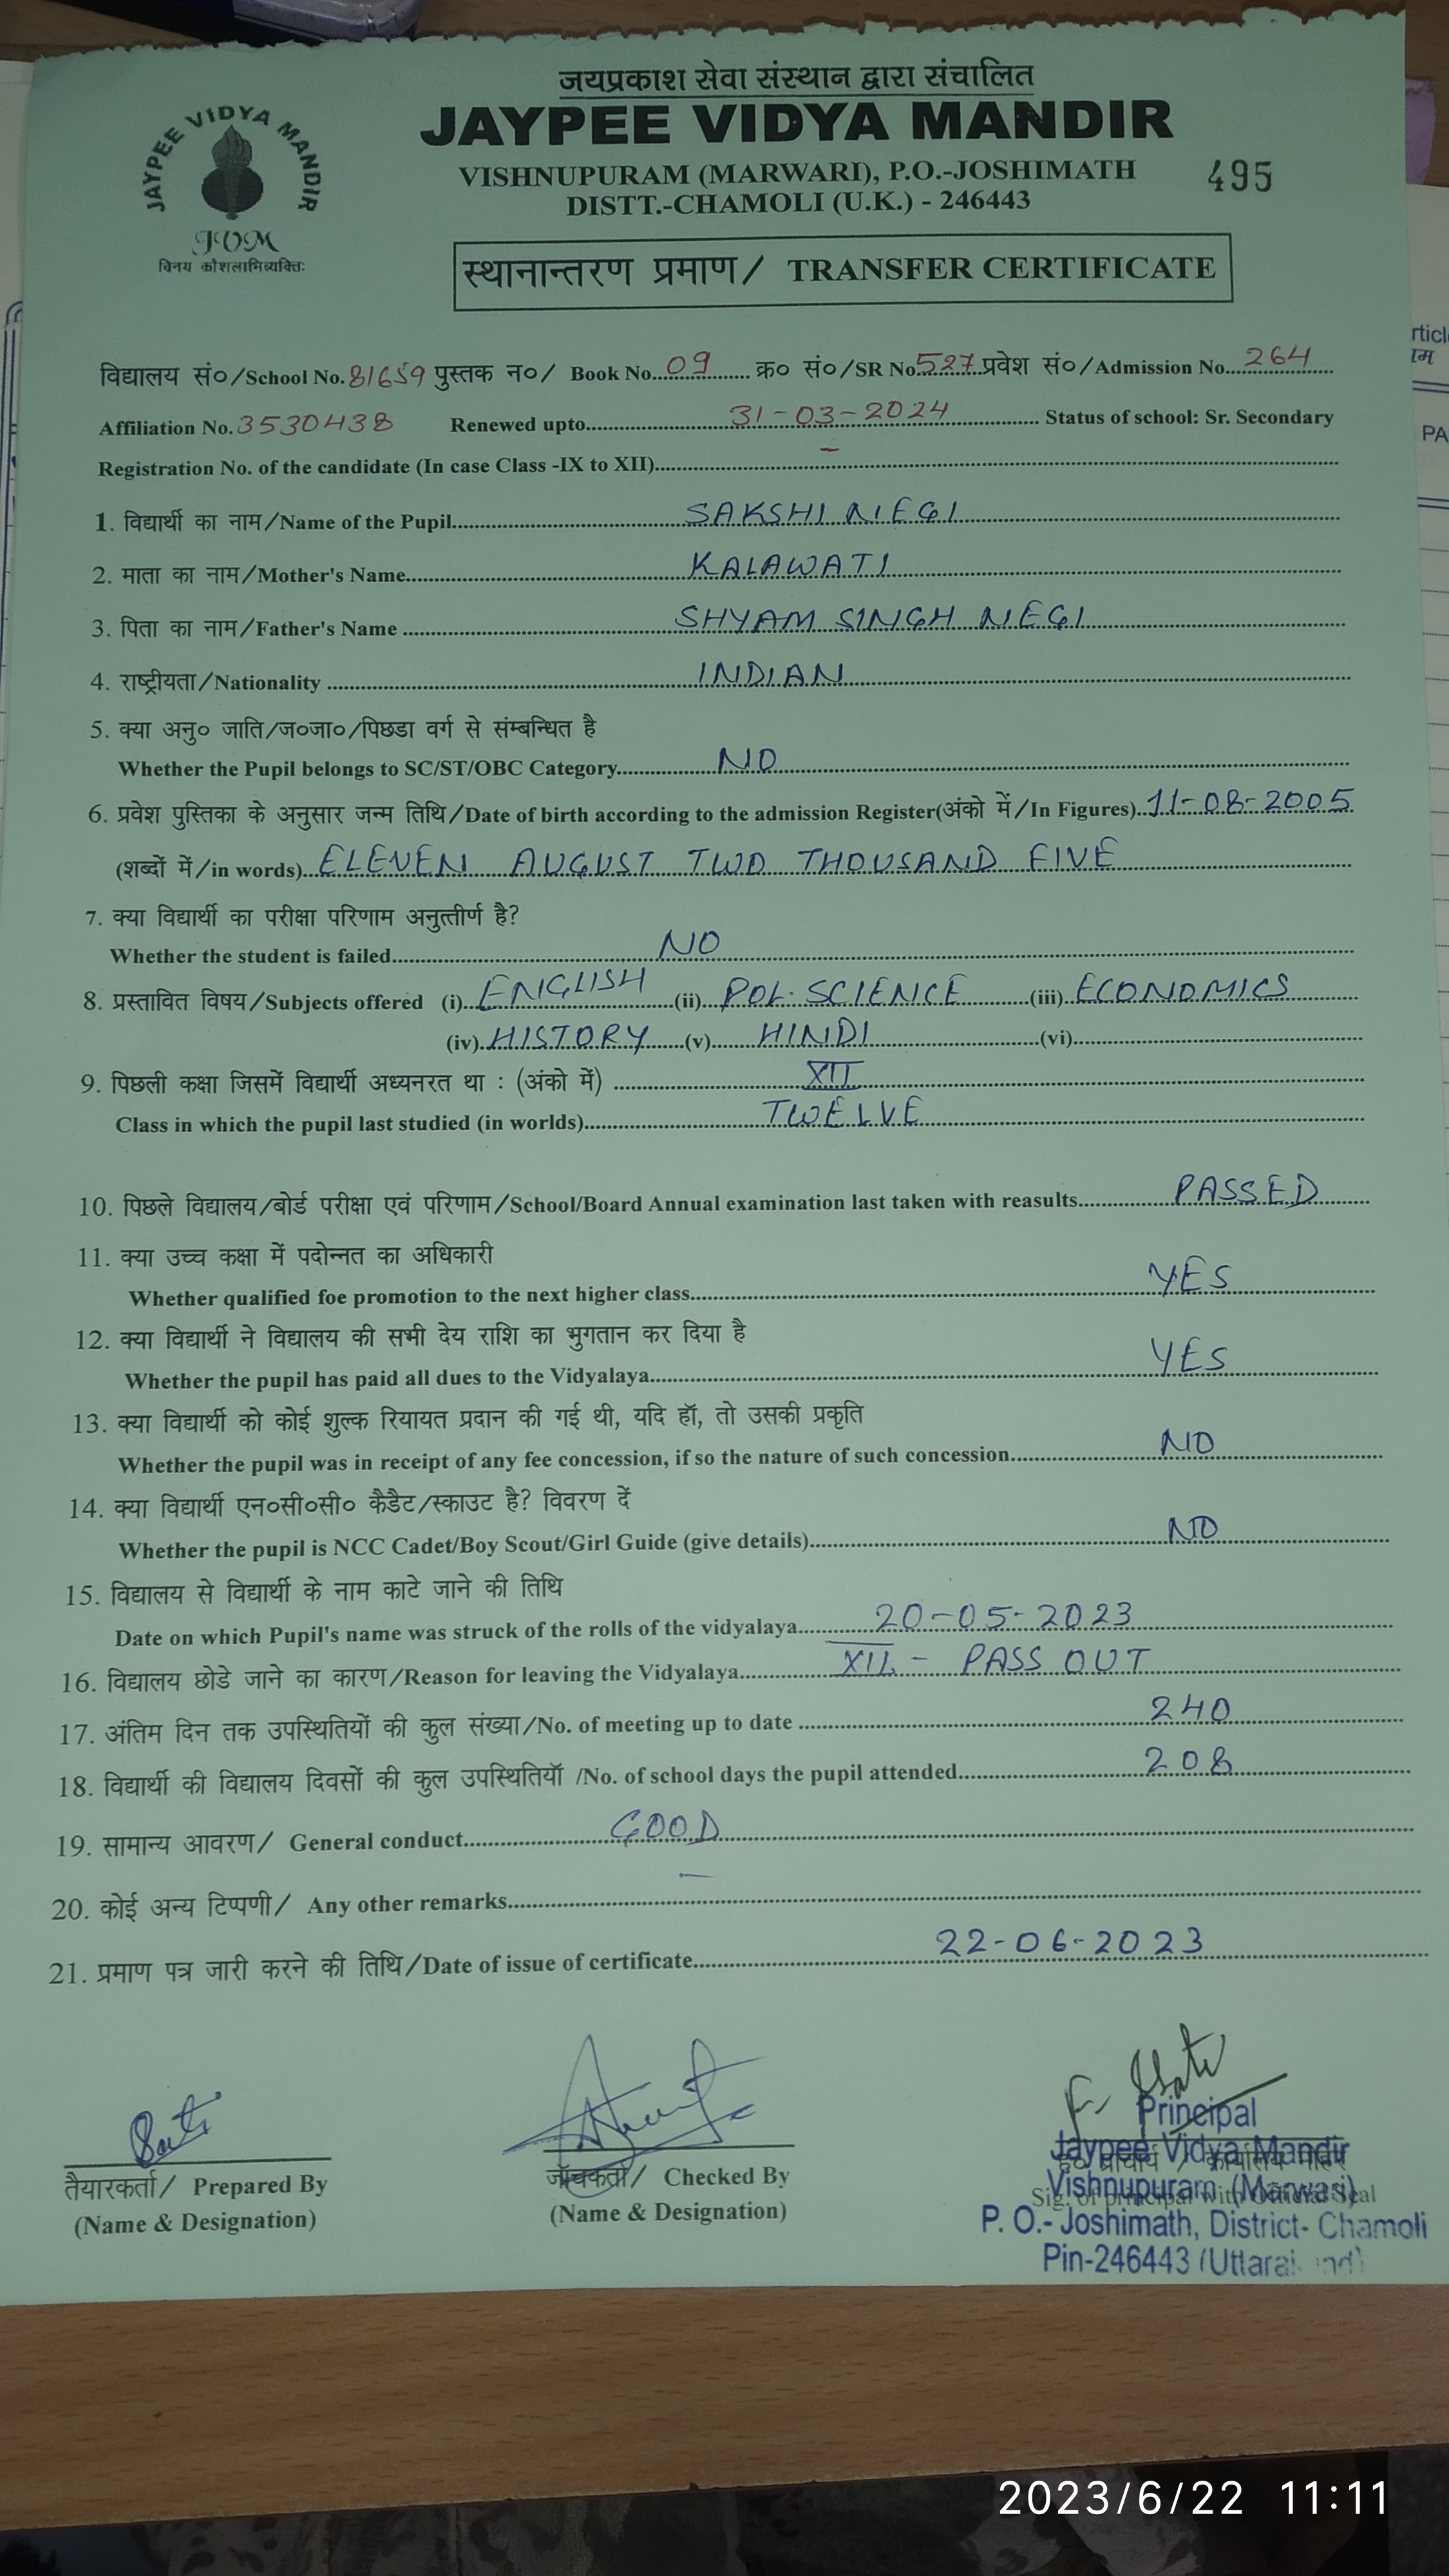 जयप्रकाश सेवा संस्थान द्वारा संचालित
JAYPEE VIDYA MANDIR
JAYPEE VIDYA MANDIR
VISHNUPURAM (MARWARI), P.O.-JOSHIMATH
495
DISTT.-CHAMOLI (U.K.) - 246443
JVM
विनय कौशलाभिव्यक्तिः
स्थानान्तरण प्रमाण/ TRANSFER CERTIFICATE
विद्यालय सं०/School No. 81659 पुस्तक न०/ Book No. 09 क्र० सं०/SR No. 527 प्रवेश सं०/Admission No. 264
Affiliation No. 3530438 Renewed upto 31-03-2024 Status of school: Sr. Secondary
Registration No. of the candidate (In case Class -IX to XII) -
1. विद्यार्थी का नाम/Name of the Pupil SAKSHI NEGI
2. माता का नाम/Mother's Name KALAWATI
3. पिता का नाम/Father's Name SHYAM SINGH NEGI
4. राष्ट्रीयता/Nationality INDIAN
5. क्या अनु० जाति/ज०जा०/पिछडा वर्ग से संम्बन्धित है
Whether the Pupil belongs to SC/ST/OBC Category NO
6. प्रवेश पुस्तिका के अनुसार जन्म तिथि/Date of birth according to the admission Register(अंको में/In Figures) 11-08-2005
(शब्दों में/in words) ELEVEN AUGUST TWO THOUSAND FIVE
7. क्या विद्यार्थी का परीक्षा परिणाम अनुत्तीर्ण है?
Whether the student is failed NO
8. प्रस्तावित विषय/Subjects offered (i) ENGLISH (ii) POL. SCIENCE (iii) ECONOMICS
(iv) HISTORY (v) HINDI (vi)
9. पिछली कक्षा जिसमें विद्यार्थी अध्यनरत था : (अंको में) XII
Class in which the pupil last studied (in worlds) TWELVE
10. पिछले विद्यालय/बोर्ड परीक्षा एवं परिणाम/School/Board Annual examination last taken with reasults PASSED
11. क्या उच्च कक्षा में पदोन्नत का अधिकारी
Whether qualified foe promotion to the next higher class YES
12. क्या विद्यार्थी ने विद्यालय की सभी देय राशि का भुगतान कर दिया है
Whether the pupil has paid all dues to the Vidyalaya YES
13. क्या विद्यार्थी को कोई शुल्क रियायत प्रदान की गई थी, यदि हॉ, तो उसकी प्रकृति
Whether the pupil was in receipt of any fee concession, if so the nature of such concession NO
14. क्या विद्यार्थी एन०सी०सी० कैडैट/स्काउट है? विवरण दें
Whether the pupil is NCC Cadet/Boy Scout/Girl Guide (give details) NO
15. विद्यालय से विद्यार्थी के नाम काटे जाने की तिथि
Date on which Pupil's name was struck of the rolls of the vidyalaya 20-05-2023
16. विद्यालय छोडे जाने का कारण/Reason for leaving the Vidyalaya XII - PASS OUT
17. अंतिम दिन तक उपस्थितियों की कुल संख्या/No. of meeting up to date 240
18. विद्यार्थी की विद्यालय दिवसों की कुल उपस्थितियॉ /No. of school days the pupil attended 208
19. सामान्य आवरण/ General conduct GOOD
20. कोई अन्य टिप्पणी/ Any other remarks -
21. प्रमाण पत्र जारी करने की तिथि/Date of issue of certificate 22-06-2023
तैयारकर्ता/ Prepared By
(Name & Designation)
जॉचकर्ता/ Checked By
(Name & Designation)
Principal
Jaypee Vidya Mandir
Vishnupuram (Marwari)
Sig. of principal with Official Seal
P. O.- Joshimath, District- Chamoli
Pin-246443
2023/6/22 11:11